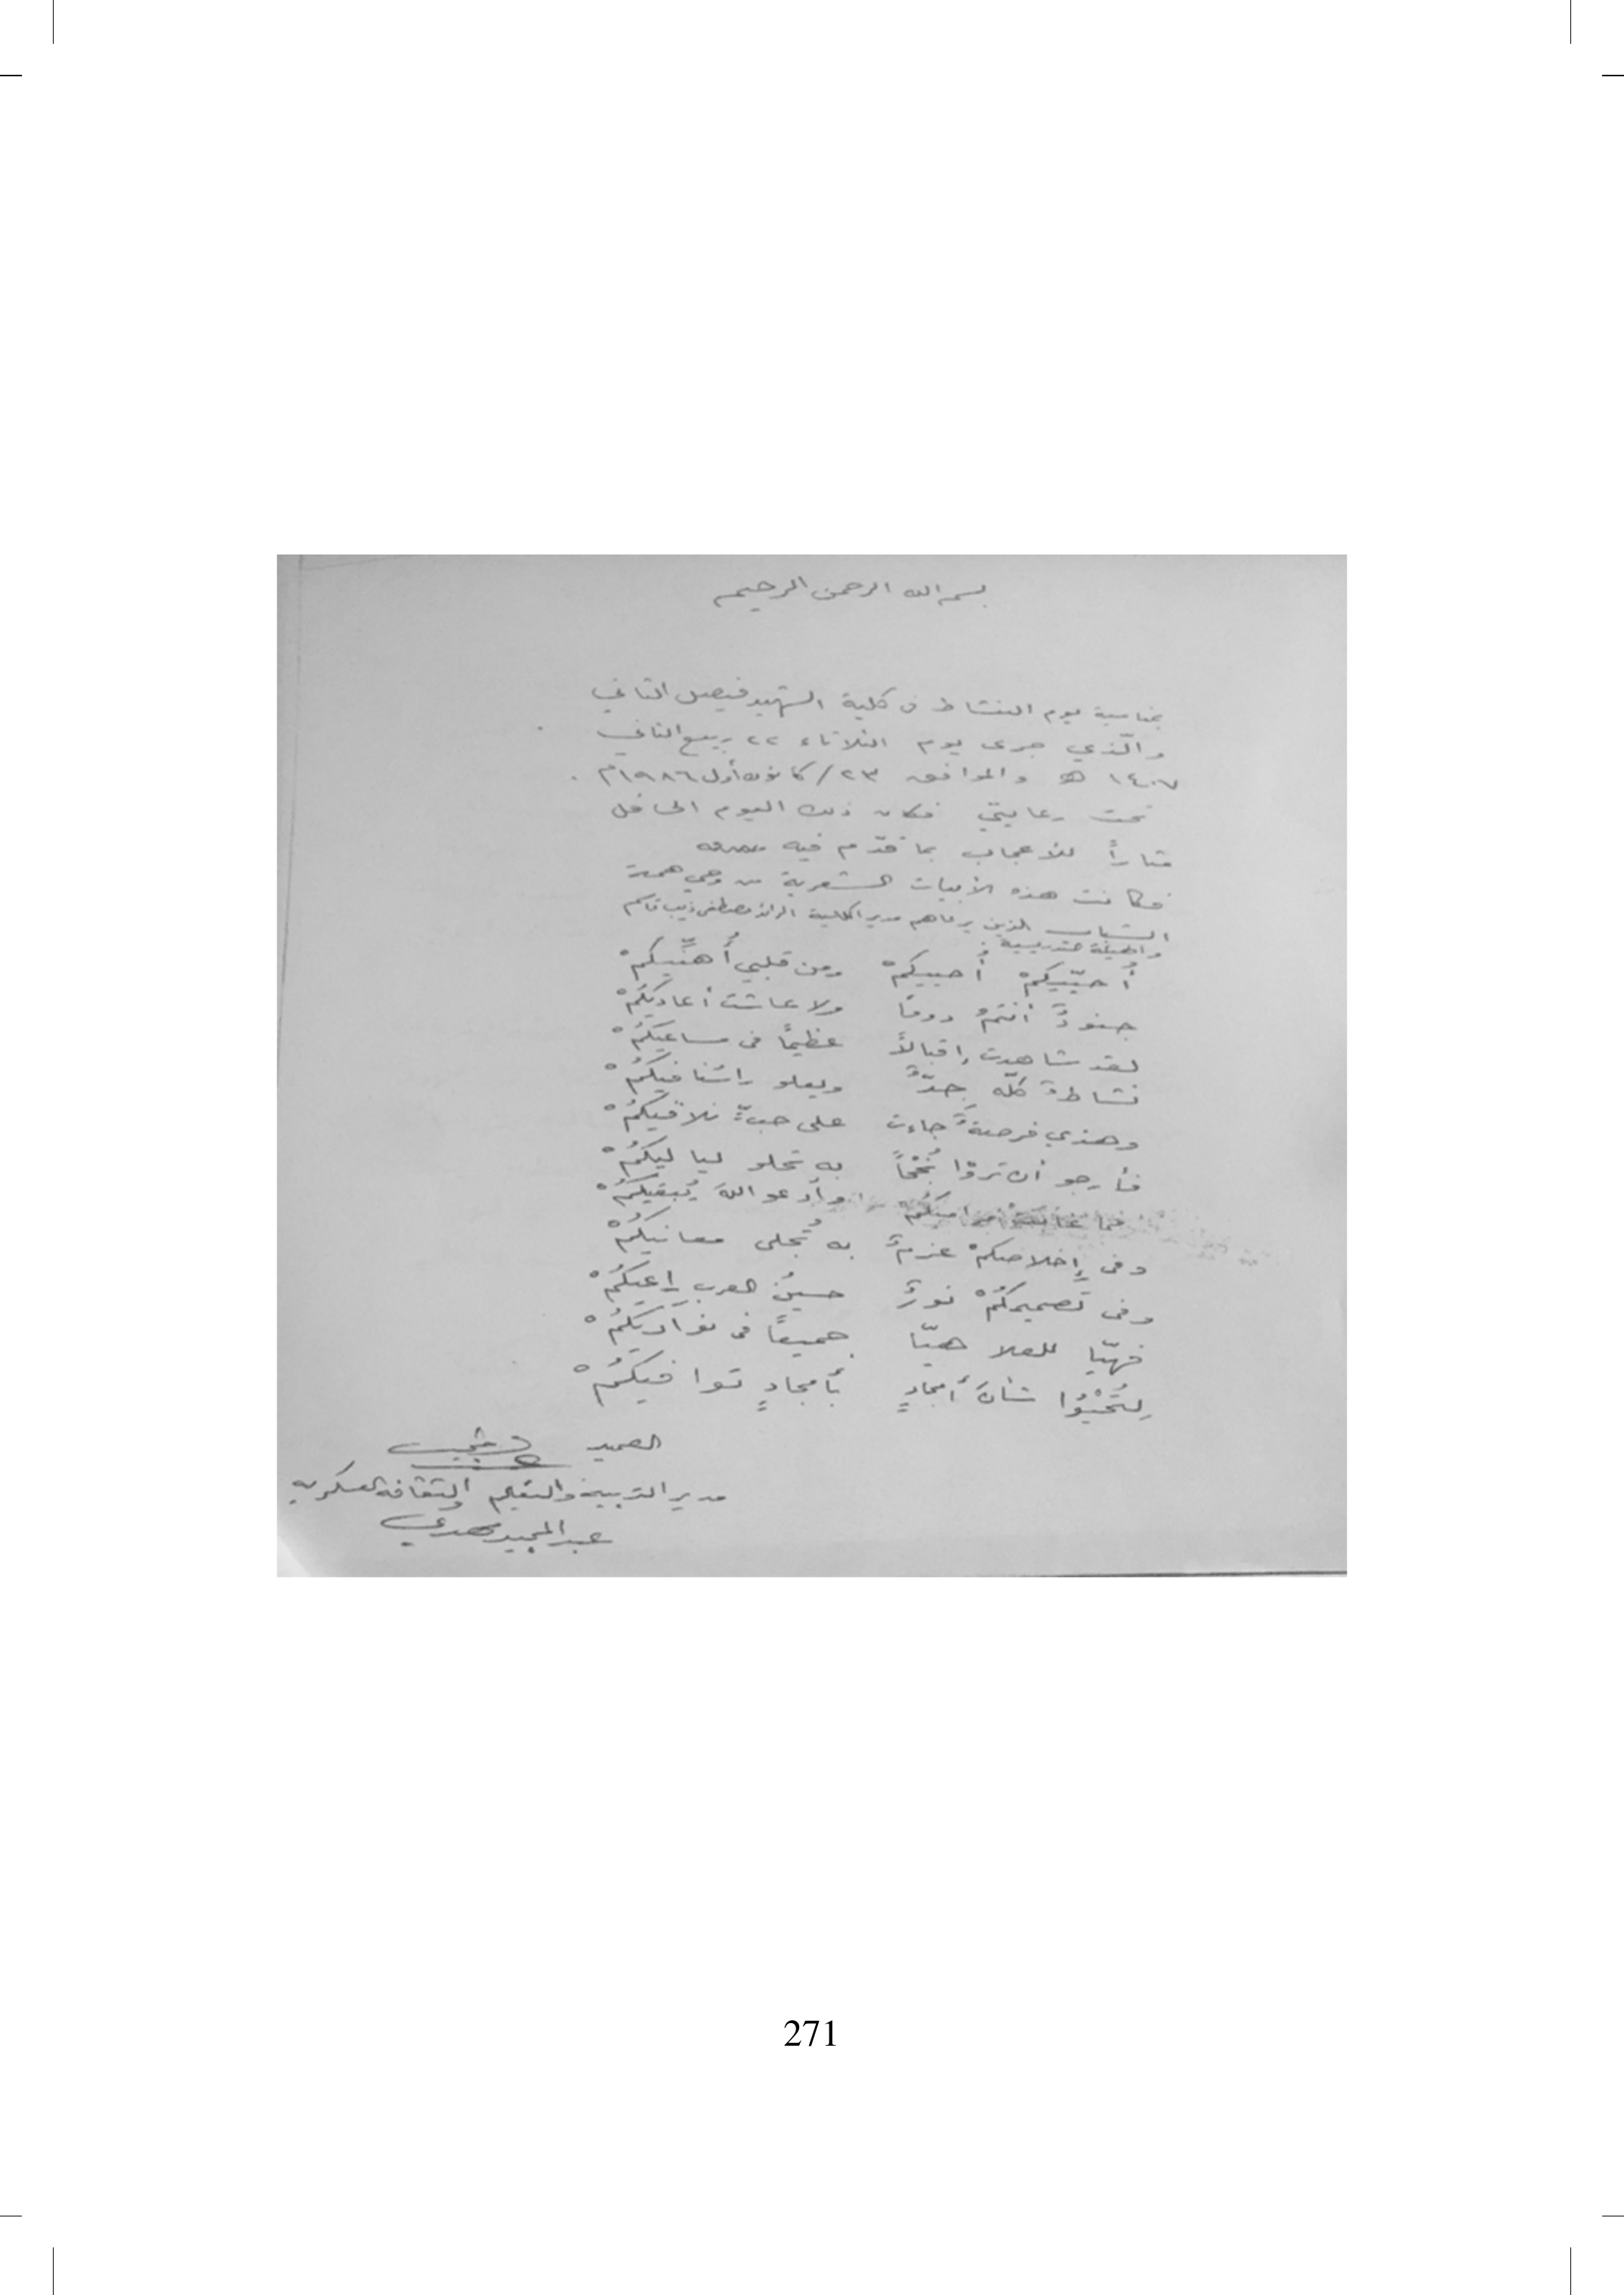 بسم الله الرحمن الرحيم
بمناسبة يوم النشاط في كلية الشهيد فيصل الثاني
والّذي جرى يوم الثلاثاء ٢٢ ربيع الثاني
١٤٠٧ هـ والموافق ٢٣/كانون أول ١٩٨٦م.
تحت رعايتي فكان ذلك اليوم الحافل
مثاراً للاعجاب بما قدّم فيه
فكانت هذه الأبيات الشعرية من وحي همة
الشباب الذين يرعاهم مدير الكلية الرائد مصطفى ذيب قاسم
والهيئة تدريسية:
أُحيّيكمْ أُحييكمْ ومن قلبي أُهنّيكمْ
جنودٌ أنتمُ دوماً ولا عاشت أعاديكُمْ
لقد شاهدت إقبالاً عظيماً في مساعيكُمْ
نشاطٌ كلّه جدٌّ ويعلو راسُنا فيكُمْ
وهذي فرصةٌ جاءت على حبٍّ نلاقيكُمْ
فأرجو أن تردّوا نُجْحاً به تحلو لياليكُمْ
فما مراميكُمْ وأدعو اللهَ يُبقيكُمْ
وفي إخلاصكمْ عزمٌ به تُجلى معانيكُمْ
وفي تصميمكُمْ نورٌ حسينُ العرب راعيكُمْ
فهيّا للعلا هيّا جميعاً في بواديكُمْ
لِتُحْيُوا شأنَ أمجادٍ بأمجادٍ توافيكُمْ
العميد
مدير التربية والتعليم والثقافة العسكرية
عبد المجيد مهدي
271